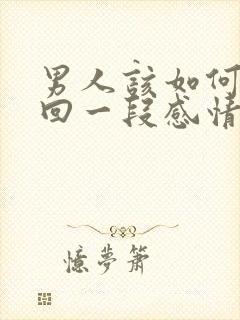 男人該如何
回一段感情
憶夢簫